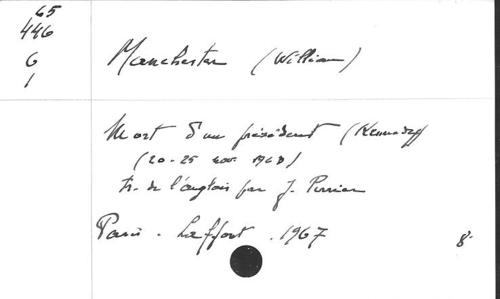 65
446
6
1
Manchester (William)
Mort d'un président (Kennedy)
(20-25 nov. 1963)
tr. de l'anglais par J. Perrier
Paris - Laffont. 1967 8°